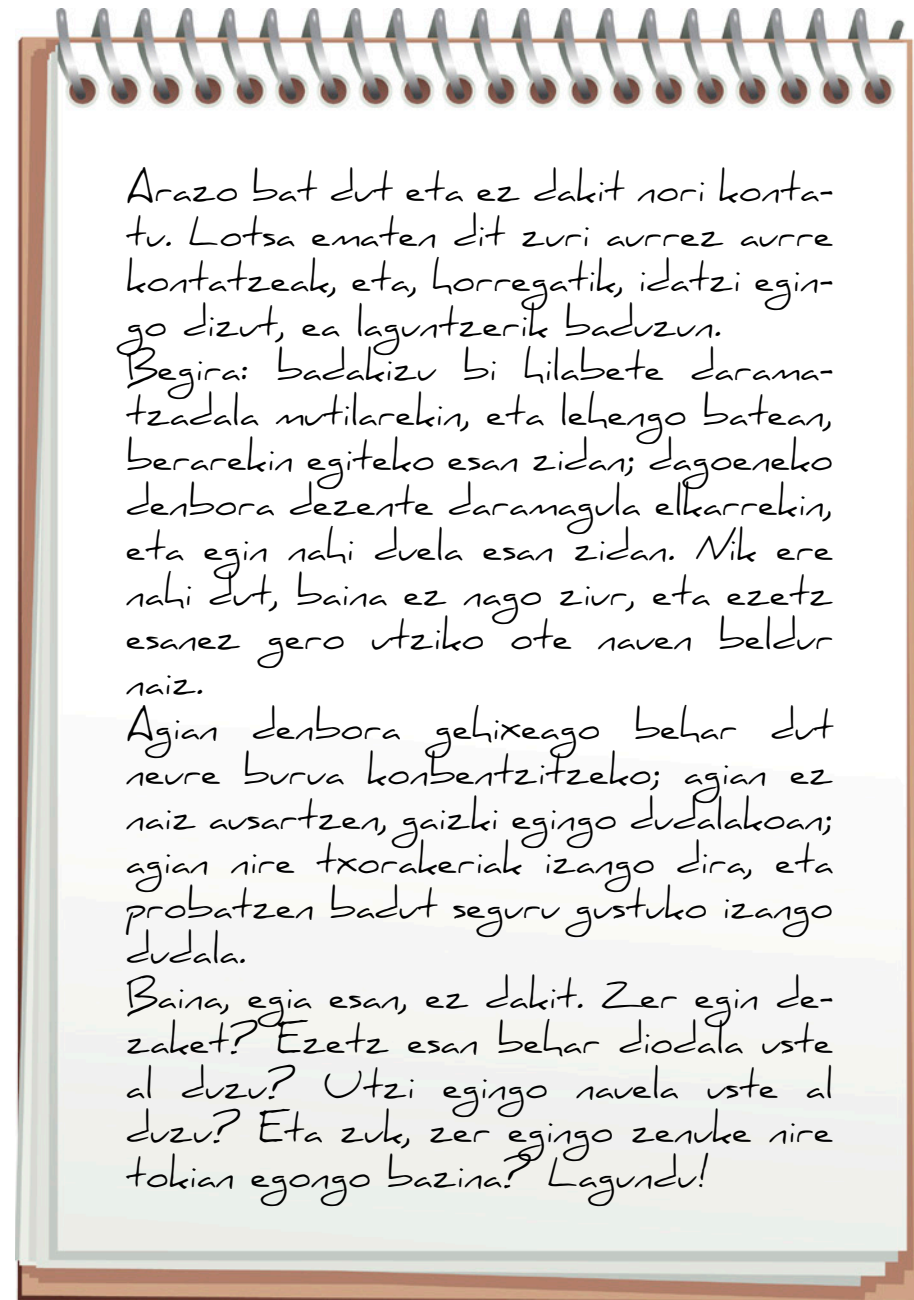 Arazo bat dut eta ez dakit nori konta-
tu. Lotsa ematen dit zuri aurrez aurre
kontatzeak, eta, horregatik, idatzi egin-
go dizut, ea laguntzerik baduzun.
Begira: badakizu bi hilabete darama-
tzadala mutilarekin, eta lehengo batean,
berarekin egiteko esan zidan; dagoeneko
denbora dezente daramagula elkarrekin,
eta egin nahi duela esan zidan. Nik ere
nahi dut, baina ez nago ziur, eta ezetz
esanez gero utziko ote nauen beldur
naiz.
Agian denbora gehixeago behar dut
neure burua konbentzitzeko; agian ez
naiz ausartzen, gaizki egingo dudalakoan;
agian nire txorakeriak izango dira, eta
probatzen badut seguru gustuko izango
dudala.
Baina, egia esan, ez dakit. Zer egin de-
zaket? Ezetz esan behar diodala uste
al duzu? Utzi egingo nauela uste al
duzu? Eta zuk, zer egingo zenuke nire
tokian egongo bazina? Lagundu!